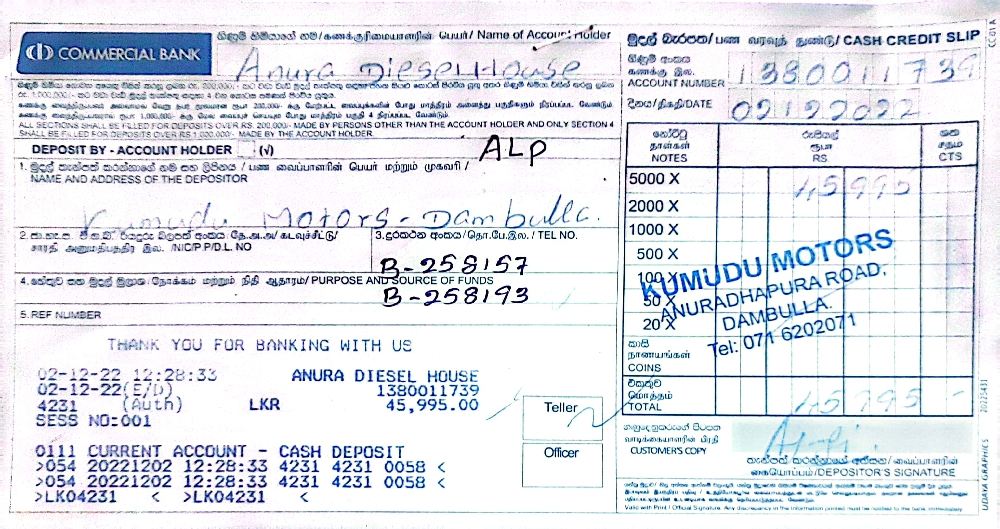 COMMERCIAL BANK
ගිණුම් හිමියාගේ නම / கணக்குரிமையாளரின் பெயர் / Name of Account Holder
Anura Diesel House
ALL SECTIONS SHALL BE FILLED FOR DEPOSITS OVER RS. 200,000/- MADE BY PERSONS OTHER THAN THE ACCOUNT HOLDER AND ONLY SECTION 4
SHALL BE FILLED FOR DEPOSITS OVER RS.1,000,000/- MADE BY THE ACCOUNT HOLDER.
DEPOSIT BY - ACCOUNT HOLDER (√)
ALP
1. මුදල් තැන්පත් කරන්නාගේ නම සහ ලිපිනය / பண வைப்பாளரின் பெயர் மற்றும் முகவரி /
NAME AND ADDRESS OF THE DEPOSITOR
Kumudu Motors - Dambulla.
சாரதி அனுமதிபத்திர இல. /NIC/P.P/D.L. NO
3. දුරකථන අංකය / தொ.பே.இல. / TEL NO.
B-258157
4. හේතුව සහ මුදල් මූලාශ්‍ර / நோக்கம் மற்றும் நிதி ஆதாரம் / PURPOSE AND SOURCE OF FUNDS
B-258193
5. REF NUMBER
THANK YOU FOR BANKING WITH US
02-12-22 12:28:33 ANURA DIESEL HOUSE
02-12-22(E/D) 1380011739
4231 (Auth) LKR 45,995.00
SESS NO:001
0111 CURRENT ACCOUNT - CASH DEPOSIT
>054 20221202 12:28:33 4231 4231 0058 <
>054 20221202 12:28:33 4231 4231 0058 <
>LK04231 < >LK04231 <
Teller
Officer
මුදල් බැරපත / பண வரவுத் துண்டு / CASH CREDIT SLIP
ගිණුම් අංකය
கணக்கு இல.
ACCOUNT NUMBER
1380011739
දිනය / திகதி / DATE
02122022
නෝට්ටු රුපියල් ශත
தாள்கள் ரூபா சதம்
NOTES RS CTS
5000 X 45995
2000 X
1000 X
500 X
100 X
50 X
20 X
KUMUDU MOTORS
ANURADHAPURA ROAD,
DAMBULLA.
Tel: 071 6202071
කාසි
நாணயங்கள்
COINS
එකතුව
மொத்தம்
TOTAL 45995 -
ගනුදෙනුකරුගේ පිටපත
வாடிக்கையாளரின் பிரதி
CUSTOMER'S COPY
තැන්පත් කරන්නාගේ අත්සන / வைப்பாளரின்
கையொப்பம் / DEPOSITOR'S SIGNATURE
Valid with Print / Official Signature. Any discrepancy in the information printed must be notified to the bank, immediately
CC 01A
20225431
UDAYA GRAPHICS